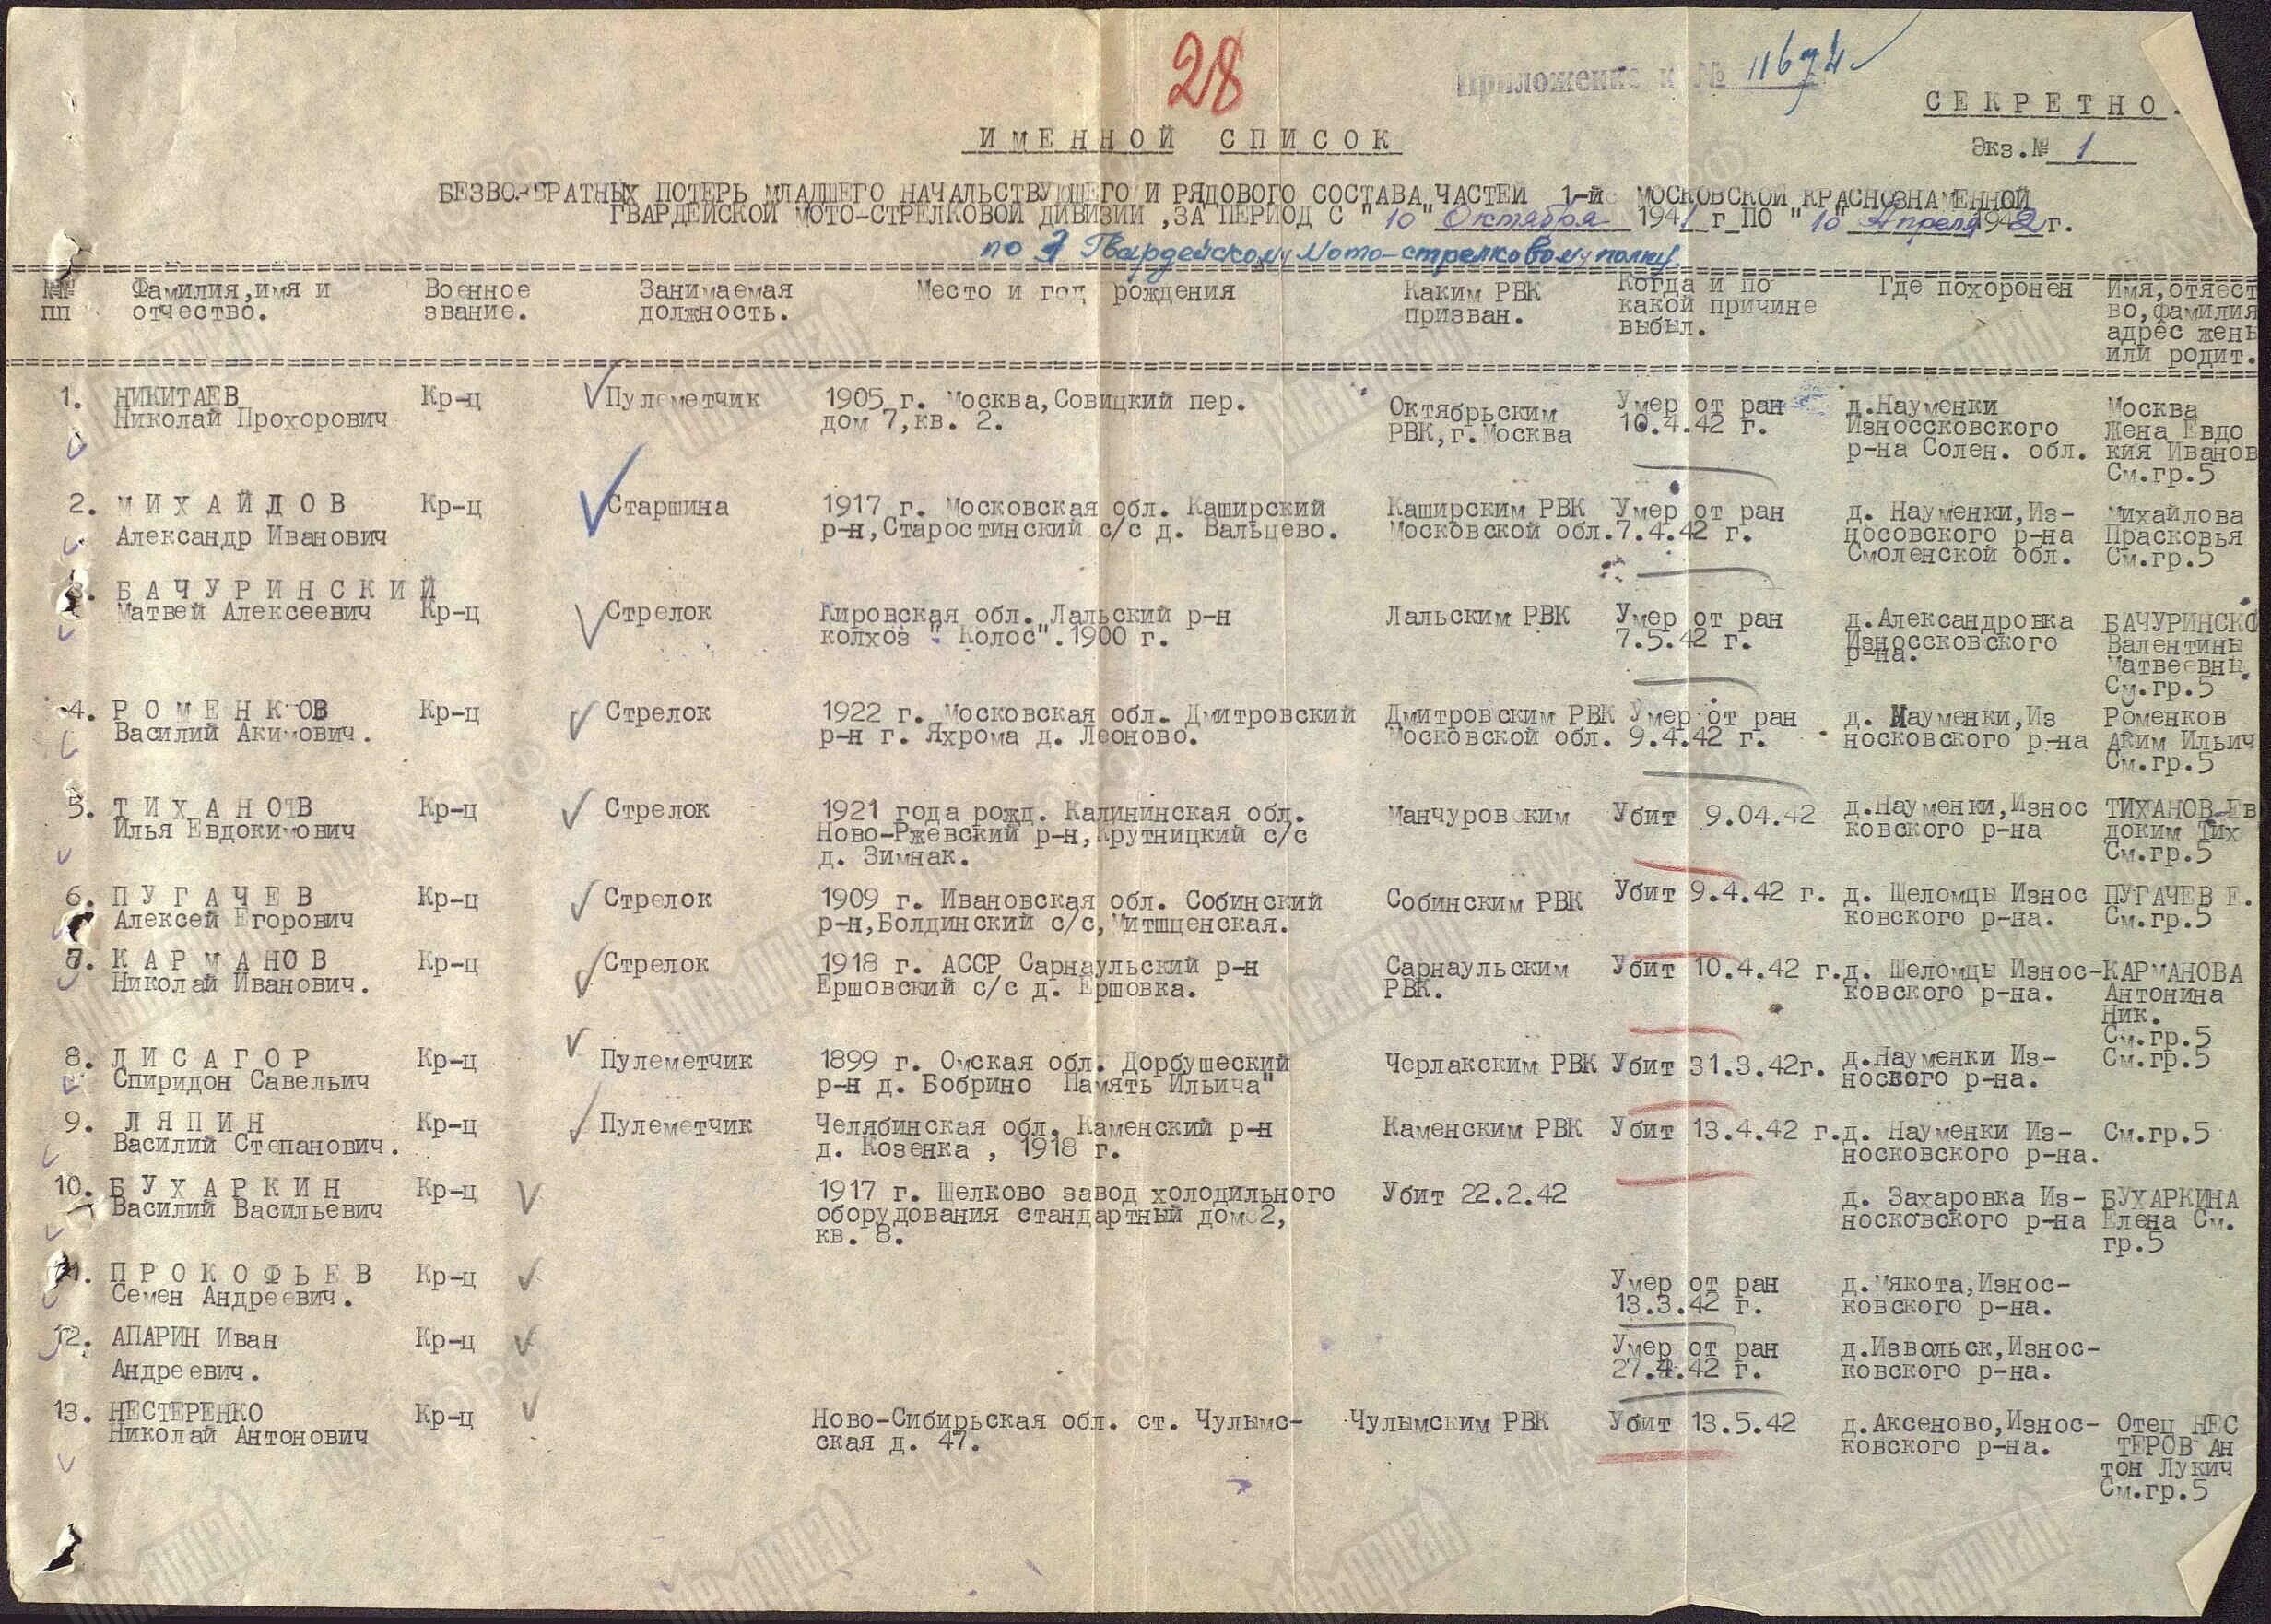 28
Приложение к № 11674
СЕКРЕТНО.
Экз.№ 1
ИМЕННОЙ СПИСОК
БЕЗВОЗВРАТНЫХ ПОТЕРЬ МЛАДШЕГО НАЧАЛЬСТВУЮЩЕГО И РЯДОВОГО СОСТАВА ЧАСТЕЙ 1-й МОСКОВСКОЙ КРАСНОЗНАМЕННОЙ
ГВАРДЕЙСКОЙ МОТО-СТРЕЛКОВОЙ ДИВИЗИИ, ЗА ПЕРИОД С "10" Октября 1941 г ПО "10" Апреля 1942 г.
по Гвардейскому Мото-стрелковому полку
№№ пп
Фамилия,имя и отчество.
Военное звание.
Занимаемая должность.
Место и год рождения
Каким РВК призван.
Когда и по какой причине выбыл.
Где похоронен
Имя,отяест во,фамилия адрес жены или родит.
1. НИКИТАЕВ Кр-ц Пулеметчик 1905 г. Москва,Совицкий пер. Октябрьским Умер от ран д.Науменки Москва
Николай Прохорович дом 7,кв. 2. РВК,г.Москва 10.4.42 г. Износсковского Жена Евдо
р-на Солен. обл. кия Иванов
См.гр.5
2. МИХАЙДОВ Кр-ц Старшина 1917 г. Московская обл. Каширский Каширским РВК Умер от ран д. Науменки,Из- Михайлова
Александр Иванович р-н,Старостинский с/с д. Вальцево. Московской обл. 7.4.42 г. носовского р-на Прасковья
Смоленской обл. См.гр.5
3. БАЧУРИНСКИЙ
Матвей Алексеевич Кр-ц Стрелок Кировская обл. Лальский р-н Лальским РВК Умер от ран д.Александровка БАЧУРИНСКО
колхоз "Колос".1900 г. 7.5.42 г. Износсковского Валентины
р-на. Матвеевны.
См.гр.5
4. РОМЕНКОВ Кр-ц Стрелок 1922 г. Московская обл. Дмитровский Дмитровским РВК Умер от ран д. Науменки,Из Роменков
Василий Акимович. р-н г. Яхрома д. Леоново. Московской обл. 9.4.42 г. носковского р-на Аким Ильич
См.гр.5
5. ТИХАНОВ Кр-ц Стрелок 1921 года рожд. Калининская обл. Манчуровским Убит 9.04.42 д.Науменки,Износ ТИХАНОВ Ев
Илья Евдокимович Ново-Ржевский р-н,Крутницкий с/с ковского р-на доким Тих
д. Зимнак. См.гр.5
6. ПУГАЧЕВ Кр-ц Стрелок 1909 г. Ивановская обл. Собинский Собинским РВК Убит 9.4.42 г. д. Шеломцы Износ ПУГАЧЕВ Е.
Алексей Егорович р-н,Болдинский с/с,Митшценская. ковского р-на. См.гр.5
7. КАРМАНОВ Кр-ц Стрелок 1918 г. АССР Сарнаульский р-н Сарнаульским Убит 10.4.42 г. д. Шеломцы Износ- КАРМАНОВА
Николай Иванович. Ершовский с/с д. Ершовка. РВК. ковского р-на. Антонина
Ник.
См.гр.5
8. ЛИСАГОР Кр-ц Пулеметчик 1899 г. Омская обл. Дорбушеский Черлакским РВК Убит 31.3.42г. д.Науменки Из- См.гр.5
Спиридон Савельич р-н д. Бобрино Память Ильича" ноского р-на.
9. ЛЯПИН Кр-ц Пулеметчик Челябинская обл. Каменский р-н Каменским РВК Убит 13.4.42 г. д. Науменки Из- См.гр.5
Василий Степанович. д. Козенка , 1918 г. носковского р-на.
10. БУХАРКИН Кр-ц 1917 г. Шелково завод холодильного Убит 22.2.42 д. Захаровка Из- БУХАРКИНА
Василий Васильевич оборудования стандартный дом 2, носковского р-на Елена См.
кв. 8. гр.5
11. ПРОКОФЬЕВ Кр-ц Умер от ран д.Мякота,Износ-
Семен Андреевич. 13.3.42 г. ковского р-на.
12. АПАРИН Иван Кр-ц Умер от ран д.Извольск,Износ-
Андреевич. 27.4.42 г. ковского р-на.
13. НЕСТЕРЕНКО Кр-ц Ново-Сибирьская обл. ст. Чулымс- Чулымским РВК Убит 13.5.42 д.Аксеново,Износ- Отец НЕС
Николай Антонович ская д. 47. ковского р-на. ТЕРОВ Ан
тон Лукич
См.гр.5